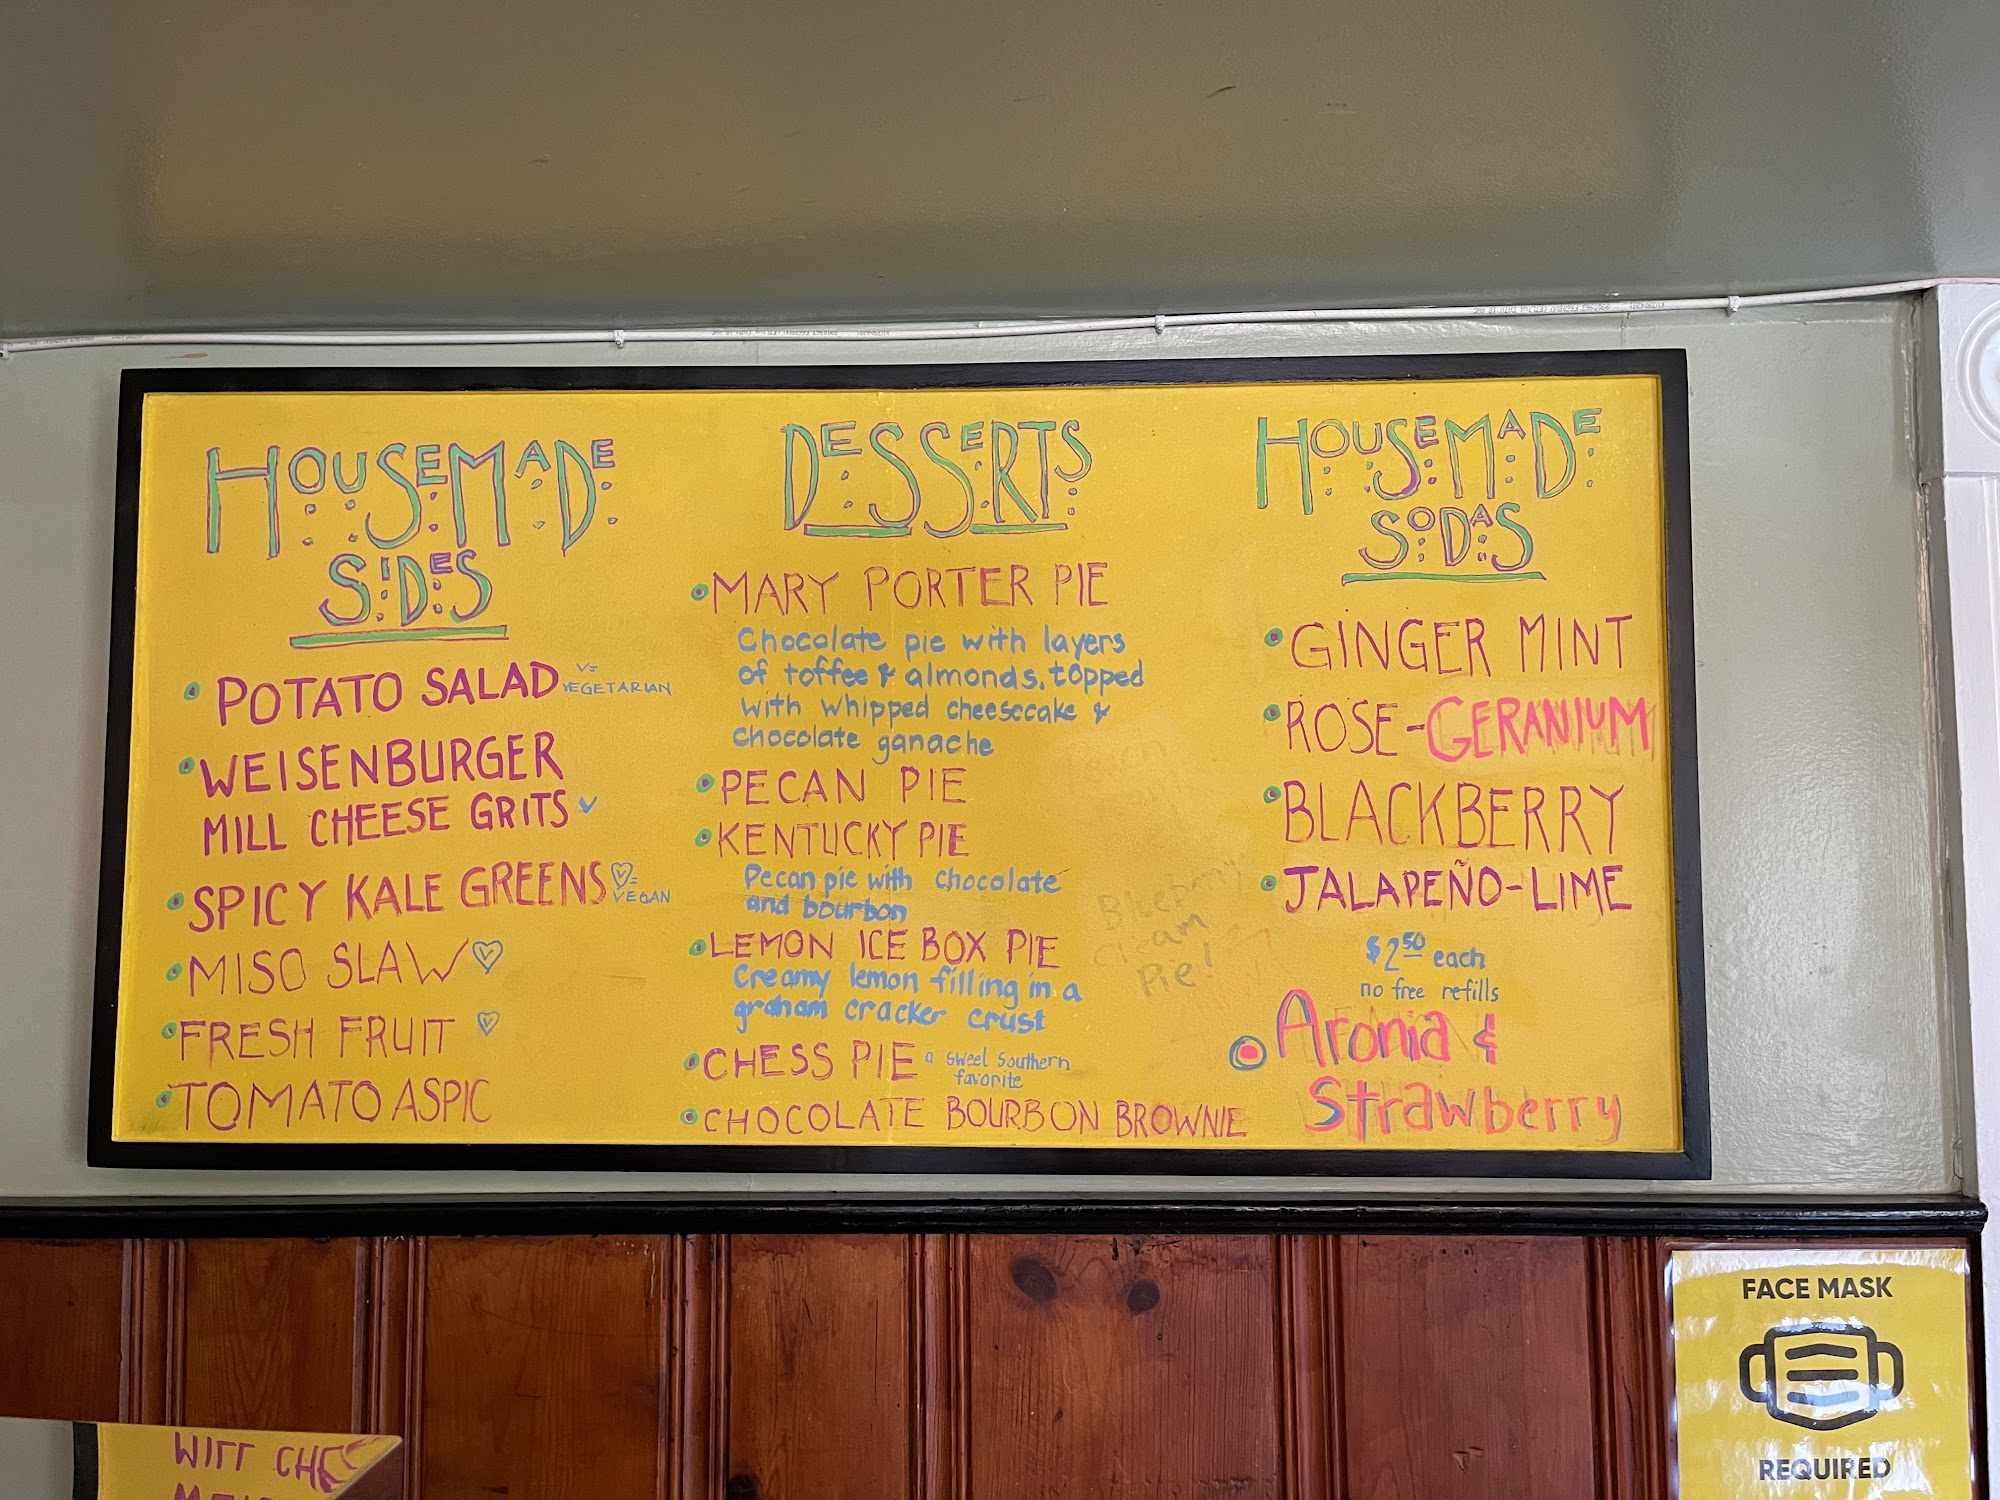 HOUSEMADE
SIDES
• POTATO SALAD V= VEGETARIAN
• WEISENBURGER
MILL CHEESE GRITS V
• SPICY KALE GREENS ♡= VEGAN
• MISO SLAW ♡
• FRESH FRUIT ♡
• TOMATO ASPIC
DESSERTS
• MARY PORTER PIE
Chocolate pie with layers
of toffee & almonds, topped
with whipped cheesecake &
chocolate ganache
• PECAN PIE
• KENTUCKY PIE
Pecan pie with chocolate
and bourbon
• LEMON ICE BOX PIE
Creamy lemon filling in a
graham cracker crust
• CHESS PIE a sweet southern
favorite
• CHOCOLATE BOURBON BROWNIE
Peach
Blueberry
Cream
Pie!
HOUSEMADE
SODAS
• GINGER MINT
• ROSE-GERANIUM
• BLACKBERRY
• JALAPEÑO-LIME
$2.50 each
no free refills
• Aronia &
Strawberry
FACE MASK
REQUIRED
WITT CHE